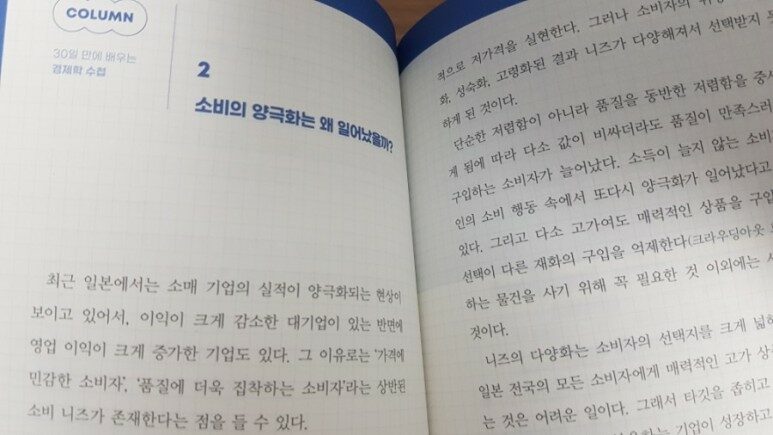 COLUMN
30일 만에 배우는
경제학 수첩
2
소비의 양극화는 왜 일어났을까?
최근 일본에서는 소매 기업의 실적이 양극화되는 현상이
보이고 있어서, 이익이 크게 감소한 대기업이 있는 반면에
영업 이익이 크게 증가한 기업도 있다. 그 이유로는 '가격에
민감한 소비자', '품질에 더욱 집착하는 소비자'라는 상반된
소비 니즈가 존재한다는 점을 들 수 있다.
적으로 저가격을 실현한다. 그러나 소비자의
화, 성숙화, 고령화된 결과 니즈가 다양해져서 선택받지
하게 된 것이다.
단순한 저렴함이 아니라 품질을 동반한 저렴함을
게 됨에 따라 다소 값이 비싸더라도 품질이 만족스러
구입하는 소비자가 늘어났다. 소득이 늘지 않는 소비
인의 소비 행동 속에서 또다시 양극화가 일어났다고
있다. 그리고 다소 고가여도 매력적인 상품을 구입
선택이 다른 재화의 구입을 억제한다(크라우딩아웃
하는 물건을 사기 위해 꼭 필요한 것 이외에는
것이다.
니즈의 다양화는 소비자의 선택지를 크게
일본 전국의 모든 소비자에게 매력적인 고가
는 것은 어려운 일이다. 그래서 타깃을 좁히고
기업이 성장하고